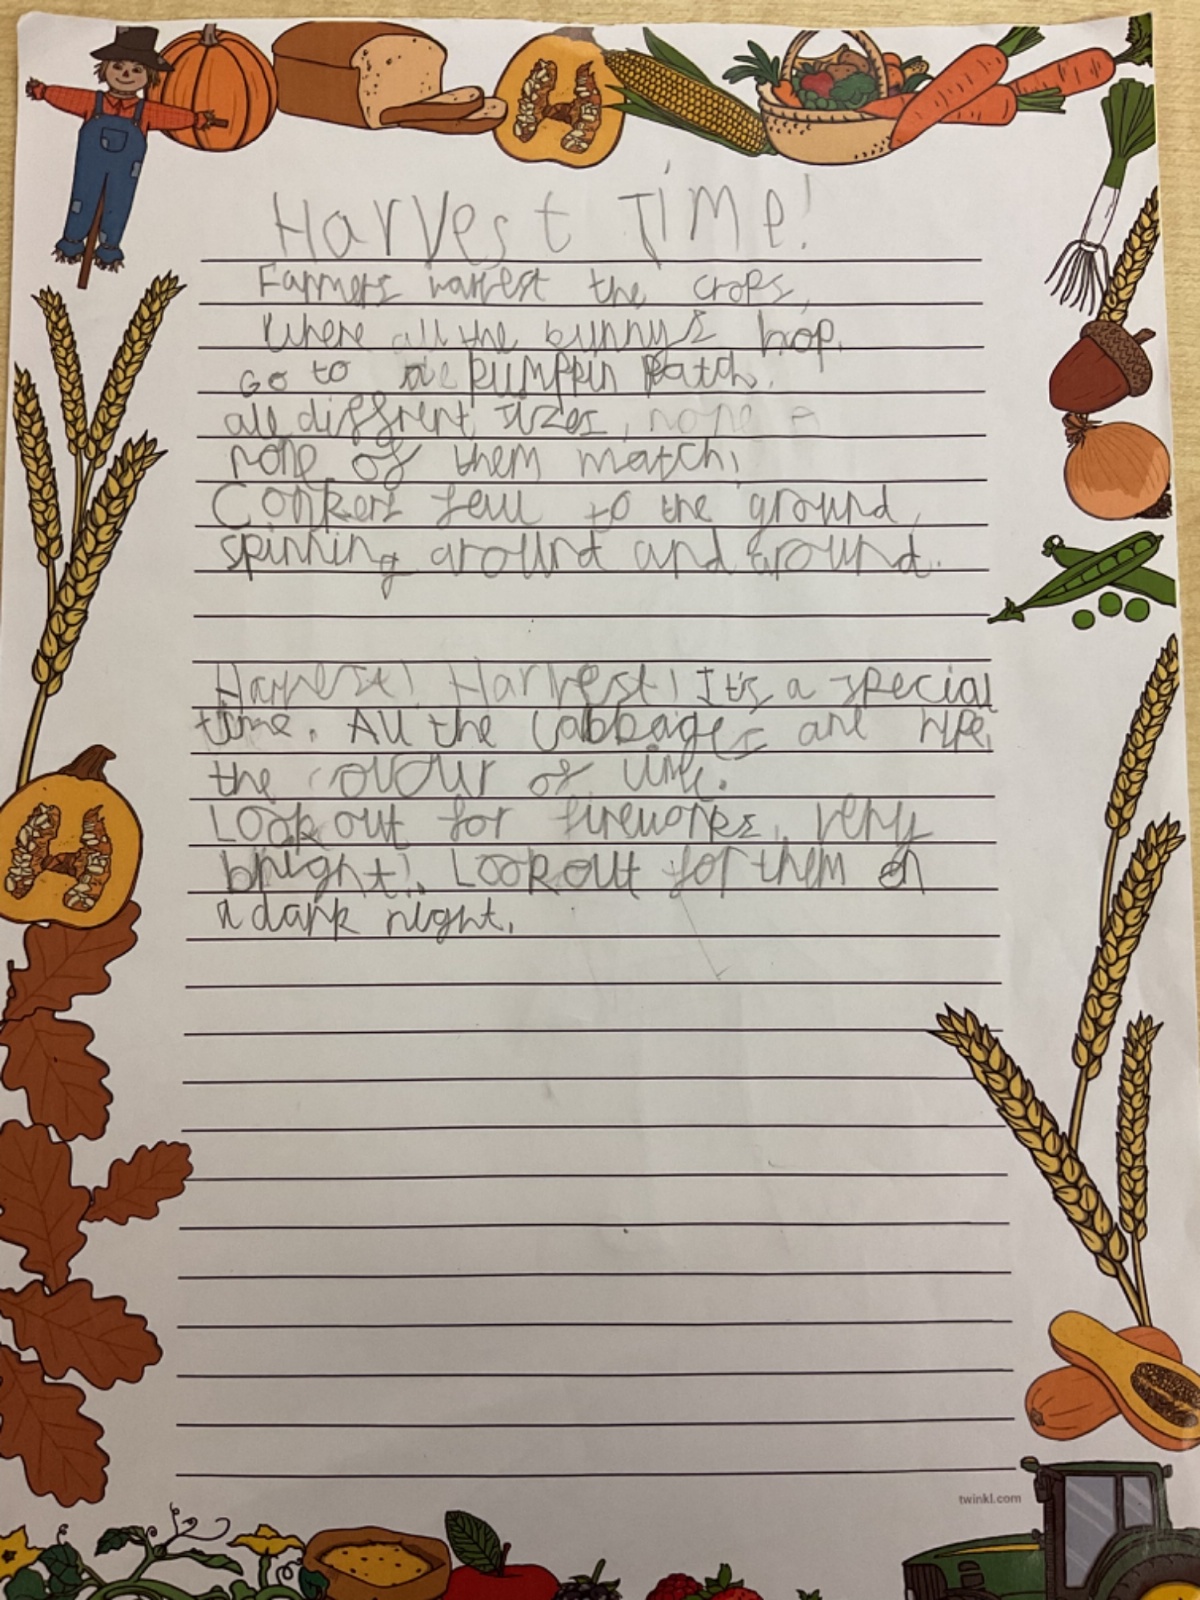 Harvest Time!
Farmers harvest the crops,
Where all the bunny's hop.
Go to the pumpkin patch,
all diffrent sizes, none
none of them match.
Conkers fell to the ground,
spinning around and around.
Harvest! Harvest! It's a special
time. All the cabbages are ripe,
the colour of lime.
Look out for fireworks, very
bright!. Look out for them on
a dark night.
twinkl.com